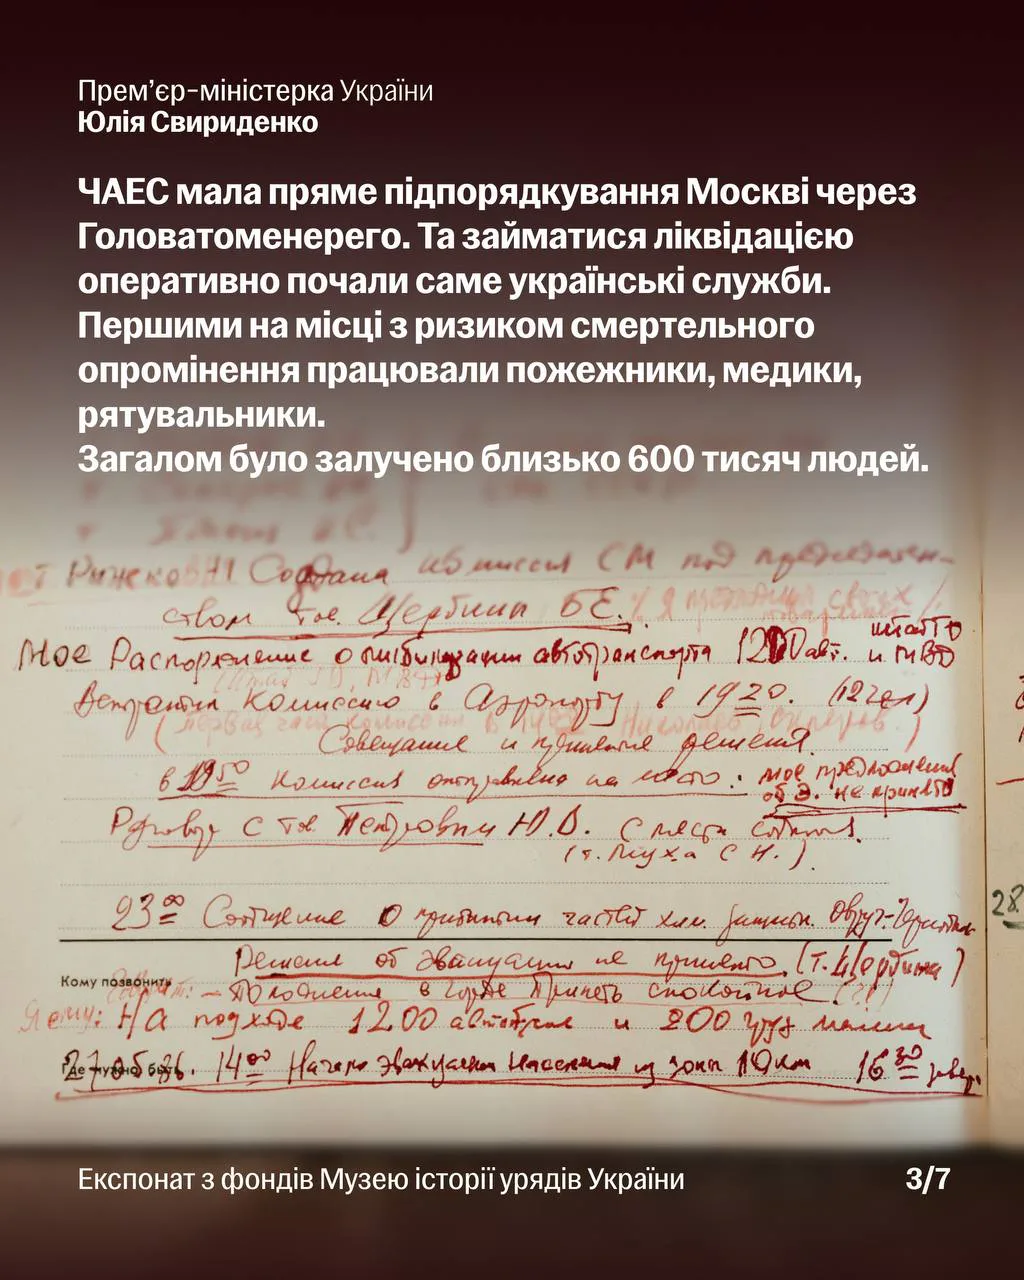 Прем’єр-міністерка України
Юлія Свириденко
ЧАЕС мала пряме підпорядкування Москві через
Головатоменерего. Та займатися ліквідацією
оперативно почали саме українські служби.
Першими на місці з ризиком смертельного
опромінення працювали пожежники, медики,
рятувальники.
Загалом було залучено близько 600 тисяч людей.
Создана комиссия СМ под председатель-
ством тов. Щербины Б.Е.
Мое Распоряжение о мобилизации автотранспорта 1200 авт. и МВД
Встретил Комиссию в Аэропорту в 19 20. (12 чел)
Совещание и принятие решения.
в 19 50 комиссия отправлена на место: мое предложение
об Э. не принято
Разговор с тов. Петровым И.В. с места события.
(т. Муха С Н.)
23 00 Сообщение о прибытии частей хим. защиты.
Решение об эвакуации не принято. (т. Щербина)
Кому позвонить
положение в городе Припять спокойное (!?)
Я ему: На подходе 1200 автобусов и 200 груз машин
Где нужно быть
14 00 Начало эвакуации населения из зоны 10 км 16 30
28.
Експонат з фондів Музею історії урядів України
3/7